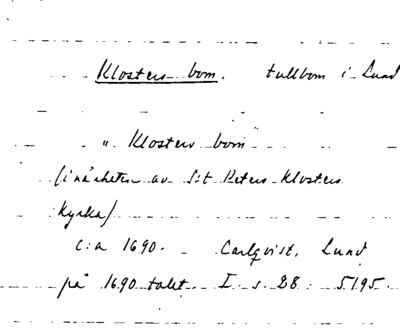 Klosters bom. tullbom i Lund
"Klosters bom"
(i närheten av S:t Peters Klosters
Kyrka)
c:a 1690. Carlqvist, Lund
på 1690 talet. I. s. 28. 5195.